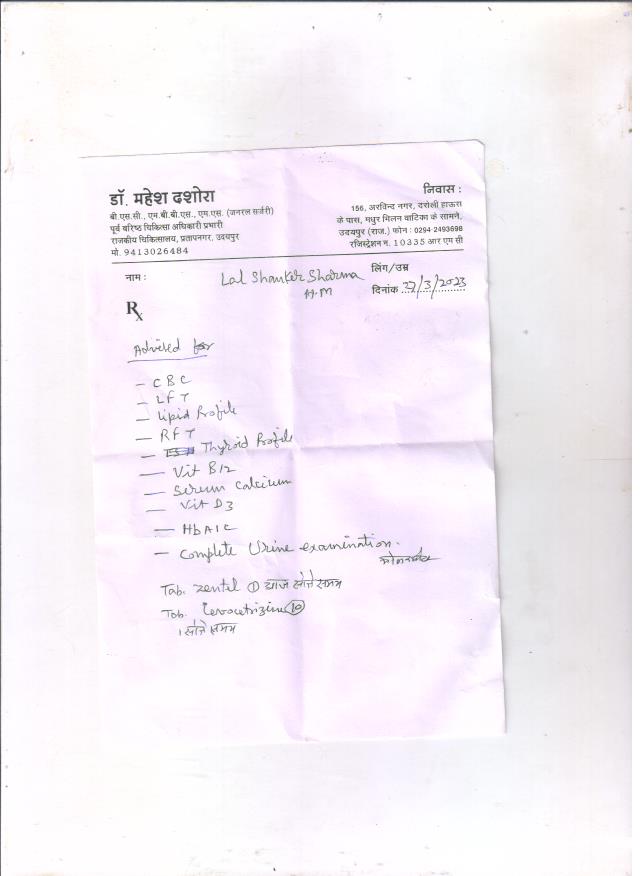 डॉ. महेश दशोरा
बी.एस.सी., एम.बी.बी.एस., एम.एस. (जनरल सर्जरी)
पूर्व वरिष्ठ चिकित्सा अधिकारी प्रभारी
राजकीय चिकित्सालय, प्रतापनगर, उदयपुर
मो. 9413026484
निवास :
156, अरविन्द नगर, दशोली हाऊस
के पास, मधुर मिलन वाटिका के सामने,
उदयपुर (राज.) फोन : 0294-2493698
रजिस्ट्रेशन न. 10335 आर एम सी
नाम : Lal Shanker Sharma
लिंग/उम्र
दिनांक 27/3/2023
Rx
Advised for
- CBC
- LFT
- Lipid Profile
- RFT
- Thyroid Profile
- Vit B12
- Serum Calcium
- Vit D3
- HbA1C
- Complete Urine examination.
Tab. Zentel ① आज सोते समय
Tab. Levocetrizine ⑩
1 सोते समय